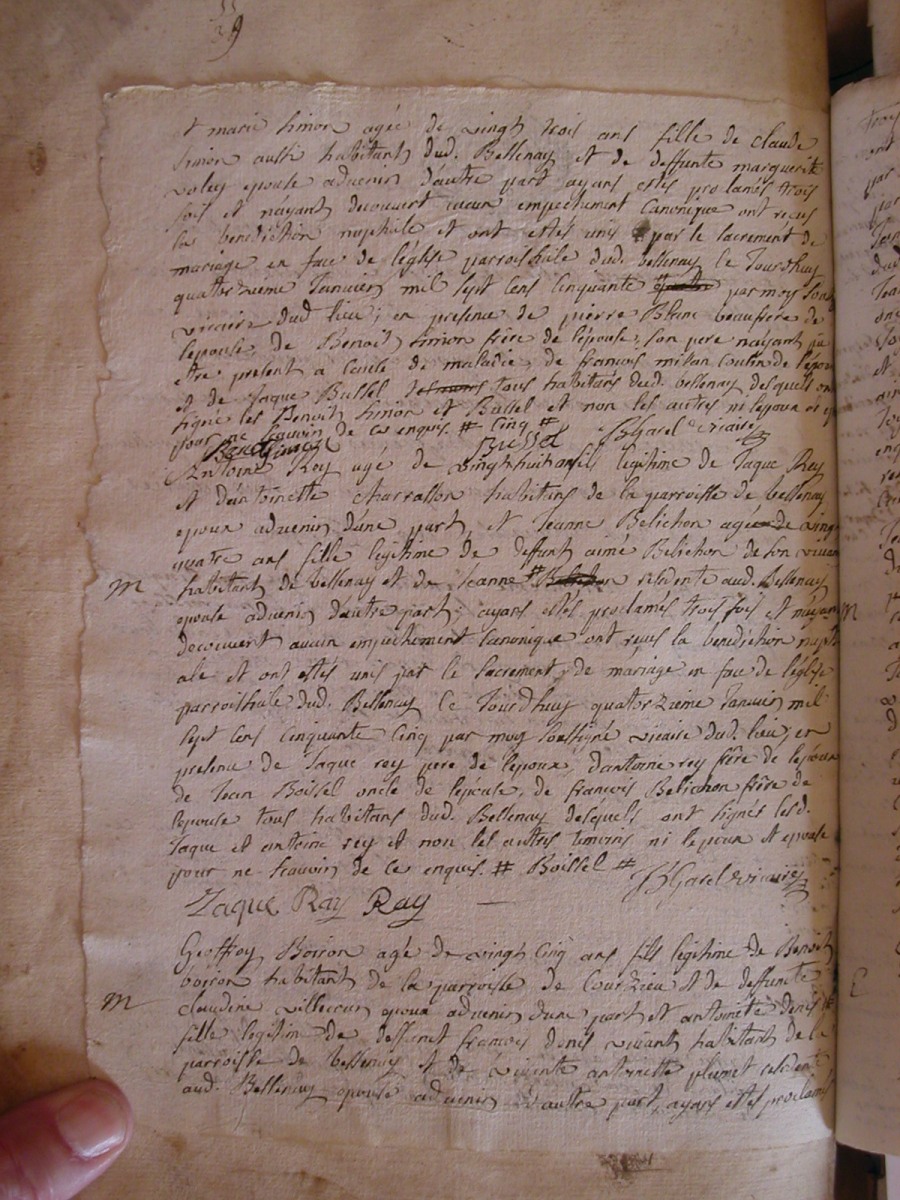 et marie simon agée de vingt trois ans fille de claude
simon aussi habitant dud. Bellenay et de deffunte marguerite
voley epouse advenir d'autre part ayans estés proclamés trois
fois et n'ayant decouvert aucun empechement canonique ont reçus
la benediction nuptiale et ont estés unis par le sacrement de
mariage en face de l'église parroissiale dud. bellenay ce Jourdhuy
quatorzieme Janvier mil sept cens cinquante par moy sous
vicaire dud lieu; en presence de pierre Blanc beaufrere de
l'epouse, de Benoit simon frère de l'épouse, son pere n'ayant pu
etre present à cause de maladie, de francois milan cousin de l'epou
et de Jaque Bussel tous habitans dud. bellenay desquels ont
signé les Benoit simon et Bussel et non les autres ni l'epoux ni ep
pour ne scauvoir de ce enquis. # Cinq #
Benoit simon Bussel JBGarel vicaire
Antoine Rey agé de vingt huit ans fils legitime de Jaque Rey
et d'antoinette charrasson habitans de la parroisse de bellenay
epoux advenir d'une part, et Jeanne Belichon agée de vingt
quatre ans fille legitime de deffunt aimé Belichon de son vivant
m habitant de bellenay et de Jeanne # residente aud. Bellenay
epouse advenir d'autre part; ayans estés proclamés trois fois et n'ayant
decouvert aucun empechement canonique ont reçus la benediction nupti
ale et ont estés unis par le sacrement de mariage en face de l'église
parroissiale dud. Bellenay ce Jourdhuy quatorzieme Janvier mil
sept cens cinquante cinq par moy soussigné vicaire dud. lieu; en
presence de Jaque rey pere de l'epoux, d'antoine rey frère de l'epoux
de Jean Boissel oncle de l'epouse, de francois Belichon frère de
l'epouse tous habitans dud. Bellenay desquels ont signés lesd.
Jaque et antoine rey et non les autres temoins ni l'epoux et epouse
pour ne scauvoir de ce enquis. # Boissel #
JBGarel vicaire
Jaque Ray Ray
Geoffroy Boiron agé de vingt cinq ans fils legitime de Benoit
boiron habitant de la parroisse de Courzieu et de deffuncte
m claudine villecour epoux advenir d'une part et antoinete denis #
fille legitime de deffunct francois denis vivant habitant de la
parroisse de bellenay et de vivente antoinette plumet residente
aud. Bellenay epouse advenir d'autre part, ayans estés proclamés